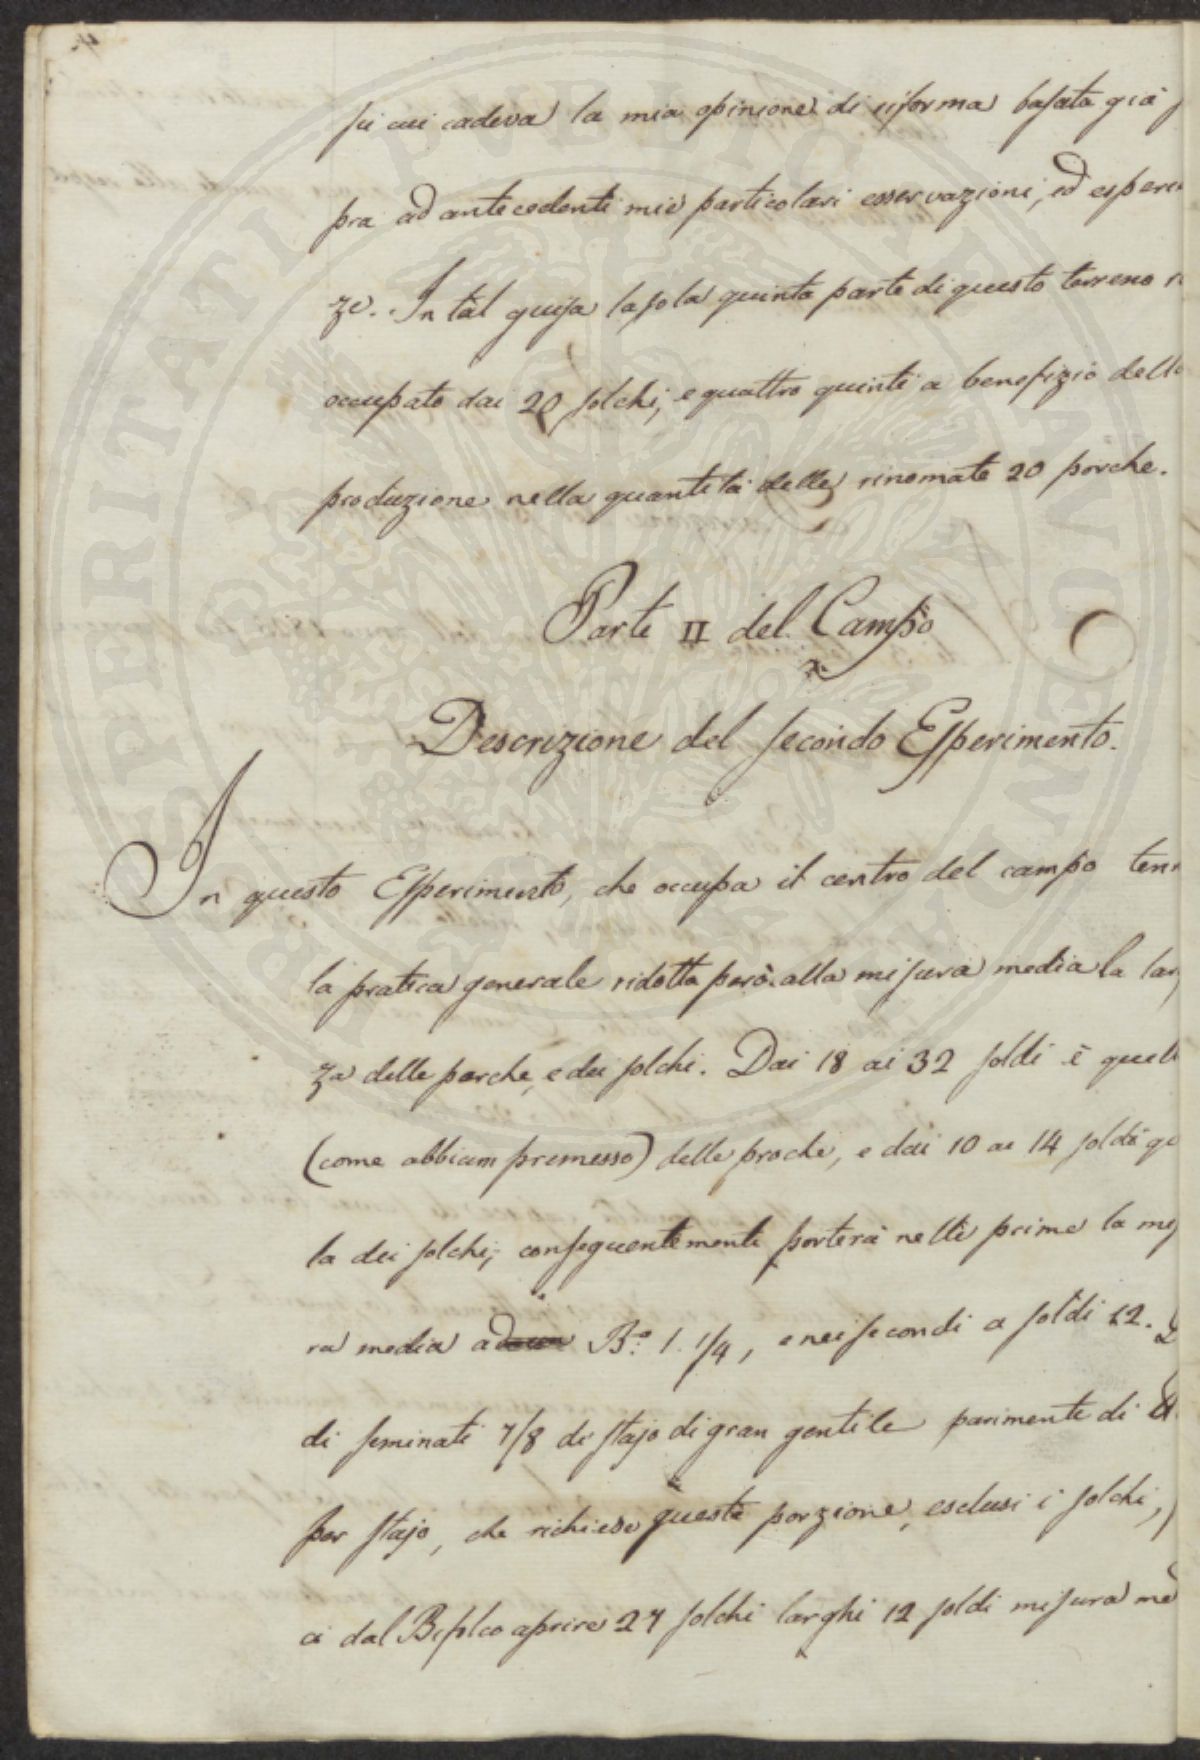 4.
su cui cadeva la mia opinione di riforma basata già
pra ad antecedenti mie particolari osservazioni, ed esperien
ze. In tal guisa la sola quinta parte di questo terreno
occupato dai 20 solchi, e quattro quinti a benefizio dello
produzione nella quantità delle rinomate 20 porche.
Parte II del Campo
Descrizione del secondo Esperimento.
In questo Esperimento, che occupa il centro del campo ten
la pratica generale ridotta però alla misura media la lar
za delle porche, e dei solchi. Dai 18 ai 32 soldi è quell
(come abbiam premesso) delle proche, e dai 10 ai 14 soldi qu
la dei solchi; conseguentemente porterà nelle prime la mis
ra media a B.ª 1. 1/4, e nei secondi a soldi 12.
di seminati 7/8 di stajo di gran gentile parimente di
per stajo, che richiese queste porzione, esclusi i solchi,
ci dal Bifolco aprire 27 solchi larghi 12 soldi misura me
PROSPERITATI PVBLICAE AVGENDAE